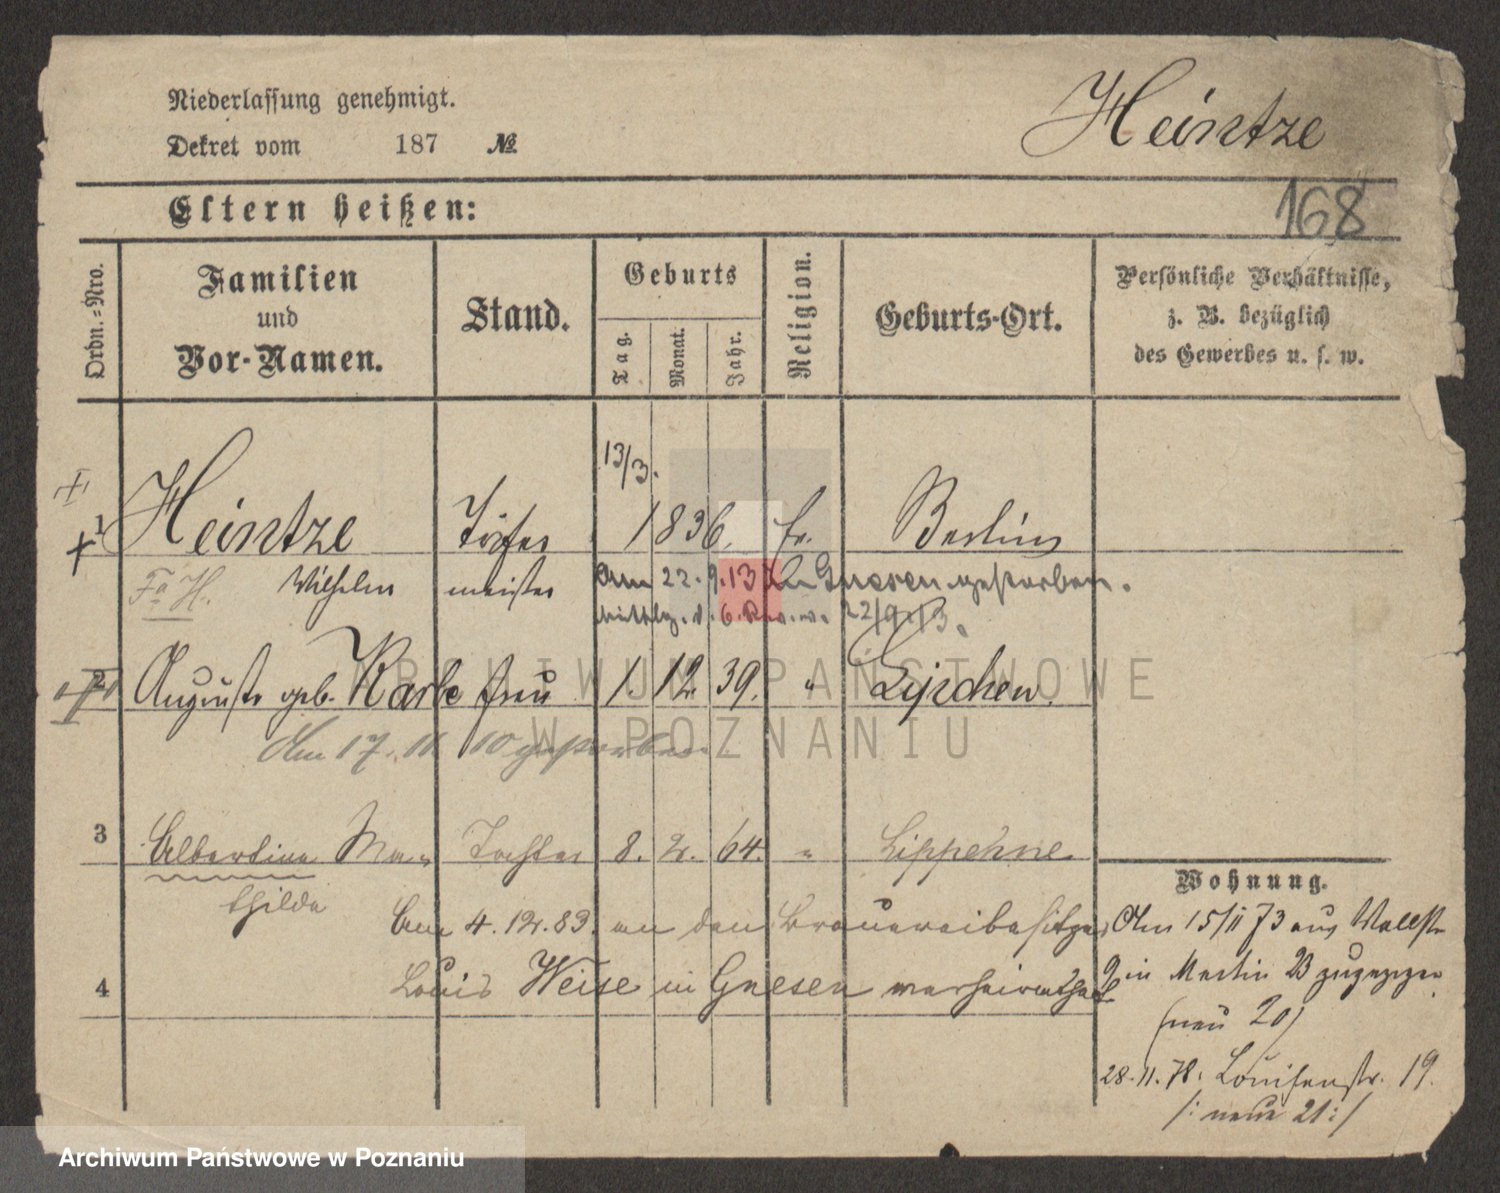 Niederlassung genehmigt.
Dekret vom 187 №
Heintze
168
Eltern heißen:
Ordn.-Nro.
Familien
und
Vor-Namen.
Stand.
Geburts
Tag.
Monat.
Jahr.
Religion.
Geburts-Ort.
Persönliche Verhältnisse,
z. B. bezüglich
des Gewerbes u. s. w.
13/3.
1 Heintze Töpfer 1836. Ev. Berlin
Fa H. Wilhelm meister Am 22.9.13 in Gnesen gestorben.
22/9.13.
2 Auguste geb. Karbe Frau 1 12. 39. " Lippehne
Am 17.11.10 gestorben
3 Albertine Ma- Tochter 8. 2. 64. " Lippehne
thilde
Am 4.12.83. an den Brauereibesitzer
4 Louis Weise in Gnesen verheirathet
Wohnung.
Am 15/11 73 aus Wallstr
9 in Martin 23 zugezogen
(neu 20)
28.11.78. Louisenstr. 19.
/: neue 21 :/
ARCHIWUM PAŃSTWOWE
W POZNANIU
Archiwum Państwowe w Poznaniu